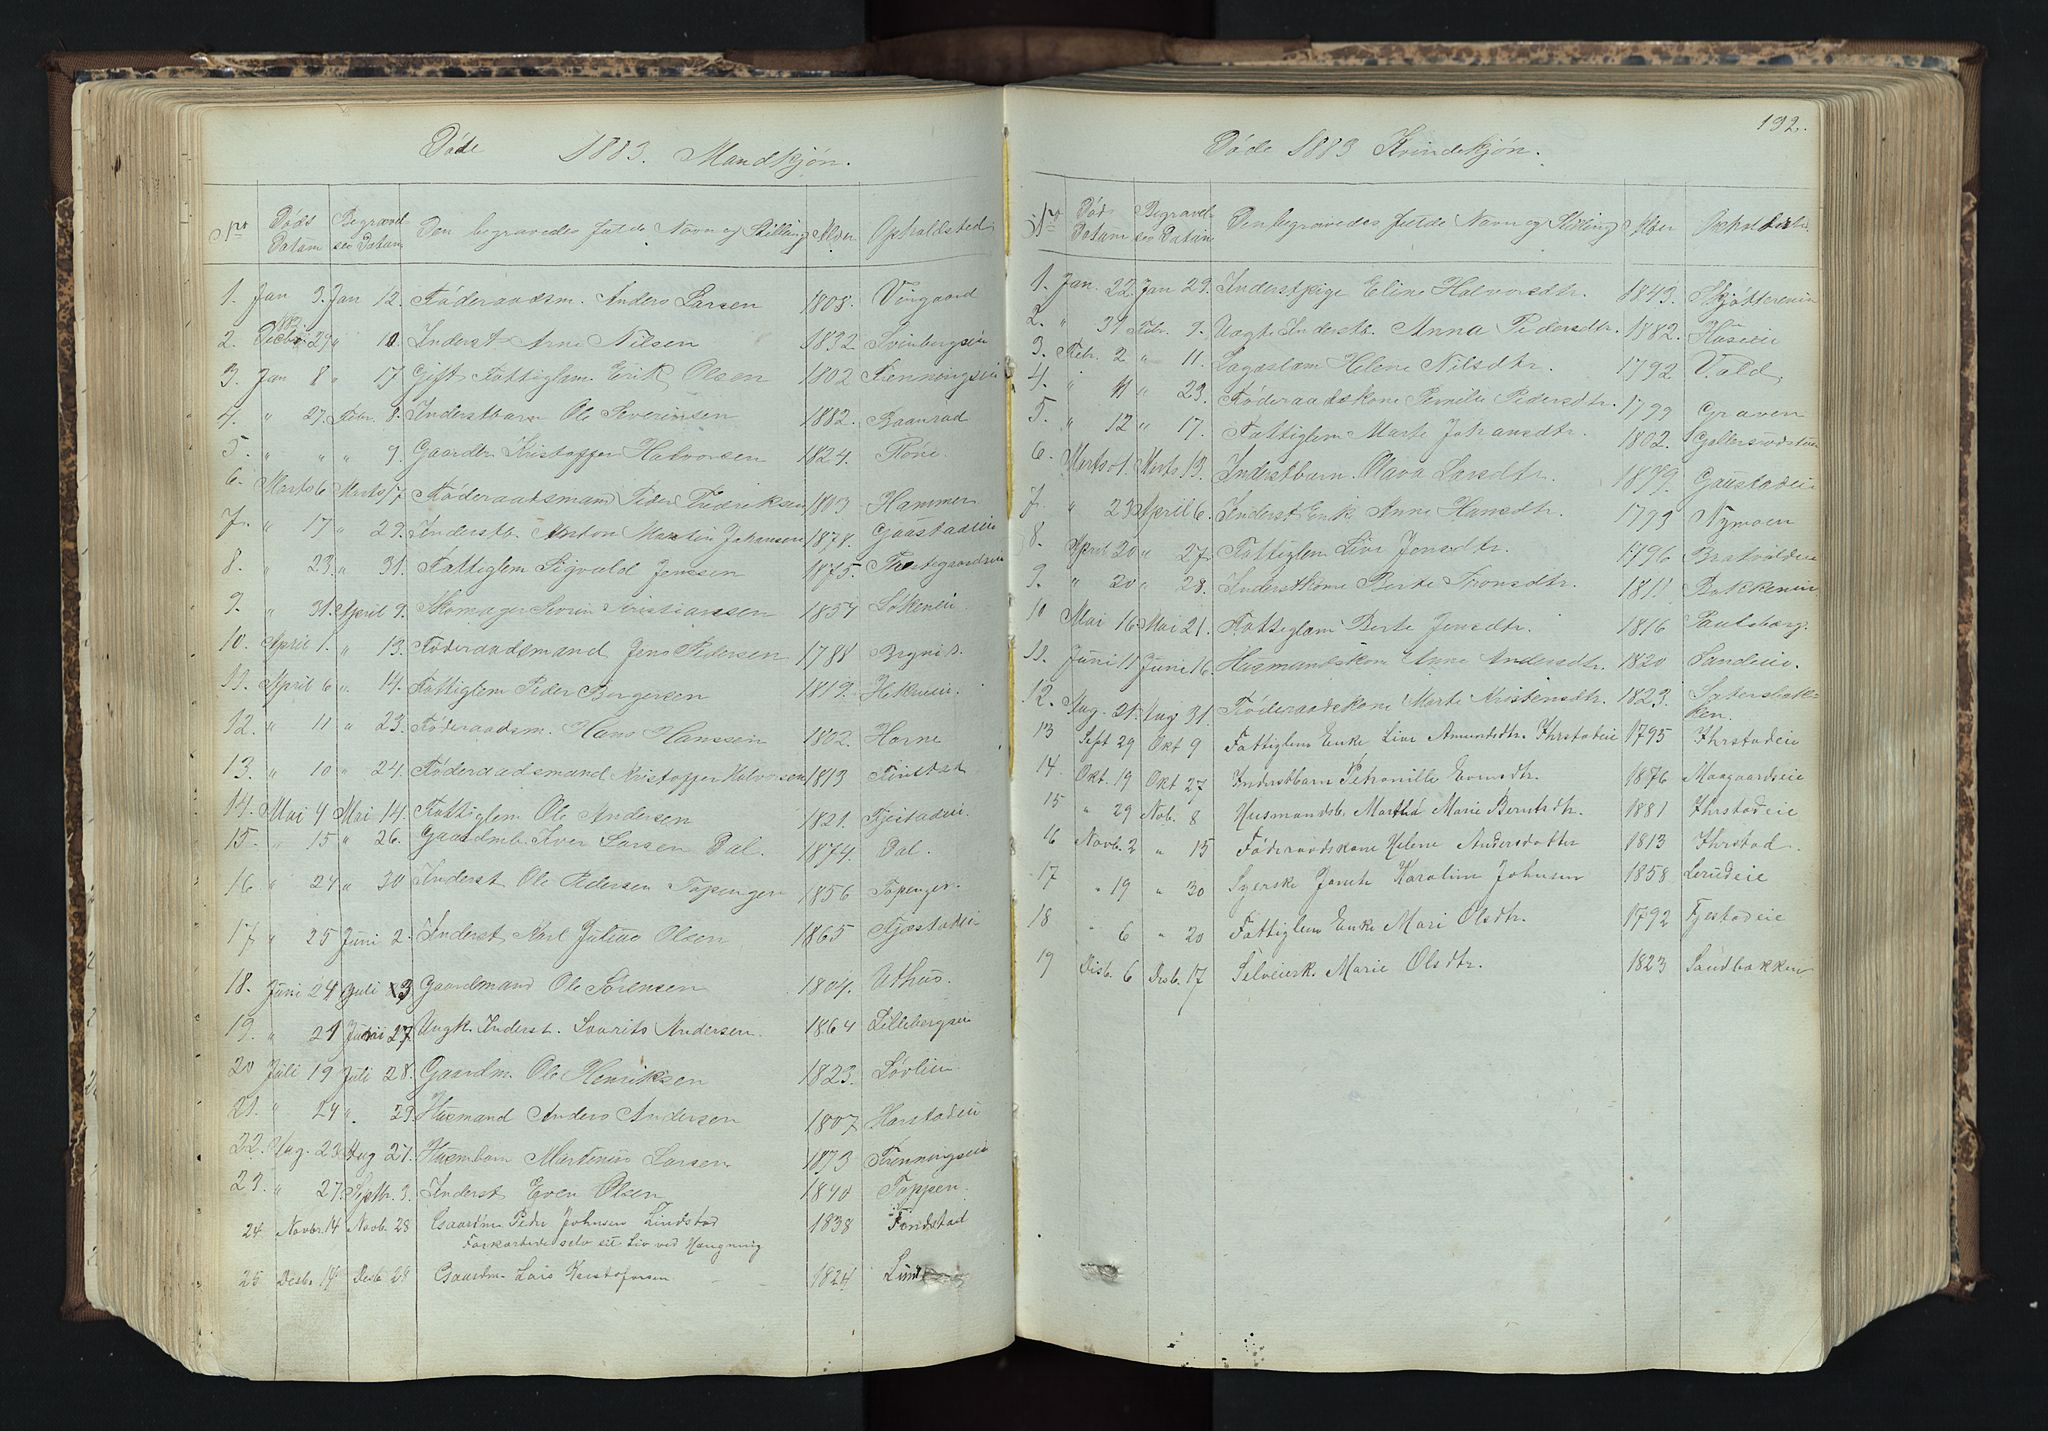 Døde 1883. Mandkjøn.
No Døds Datum Begravelses Datum Den begravedes fulde Navn og Stilling Alder Opholdsted
1. Jan 3. Jan 12. Føderaadsm. Anders Larsen 1808. Vingaard
2. Decbr 1882 29 " 10. Inderst Arne Nilsen 1832 Svinbergseie
3. Jan 8 " 17 Gift Fattiglem. Erik Olsen 1802 Fænningseie
4. " 27. Febr. 8. Inderstbarn Ole Severinsen 1882. Baanrud
5. " " " 9. Gaarder Kristoffer Halvorsen 1824. Røni
6. Marts 6 Marts 17 Føderaadsmand Peder Fredriksen 1803 Hammer
7. " 17 " 29. Inderstb. Anton Martin Johansen 1878. Gaustadeie
8. " 23. " 31. Fattiglem Sigvald Jenssen 1875.
9. " 31. April 9. Skomager Søren Kristianssen 1854 Løkeneie
10. April 1. " 13. Føderaadsmand Jens Pedersen 1788 Bryni
11. April 6 " 14. Fattiglem Peder Borgersen 1819.
12. " 11 " 23. Føderaadsm. Hans Hanssen 1802. Horne
13. " 10 " 24. Føderaadsmand Kristoffer Halvorsen 1813 Finstad
14. Mai 4 Mai 14. Fattiglem Ole Andersen 1821. Fjestadeie
15. " 15 " 26. Gaardmb. Iver Larsen Dal. 1874. Dal.
16 " 24 " 30 Inderst Ole Pedersen Topenger 1856 Topenger.
17 " 25 Juni 2. Inderst Karl Julius Olsen 1865 Fjestadeie
18. Juni 24 Juli 3 Gaardmand Ole Sørensen 1804. Uthus.
19. " 21 Juni 27 Ungk. Inderst. Lavrits Andersen. 1864 Lillebergseie
20 Juli 19 Juli 28. Gaardm. Ole Henriksen 1823. Løvlien
21. " 24 " 29 Husmand Anders Andersen 1807 Harstadeie
22. Aug. 23 Aug 27. Husmbarn Martinus Larsen 1873 Fænningseie
23. " 27. Septbr. 3. Inderst Even Olsen 1840 Toppen.
24 Novbr. 14 Novb. 28 Gaardm Peder Johnsen Lindstad 1838 Findstad
Forkortede selv sit Liv ved Hængning
25 Desb. 14 Desb 28 Gaardm Lars Kristofersen 1824 Lund
192.
Døde 1883 Kvindekjøn.
No Døds Datum Begravelses Datum Den begravedes fulde Navn og Stilling Alder Opholdsted.
1. Jan. 22 Jan 29. Inderstpige Eline Halvorsdtr. 1843. Skjøttereneie
2. " 31 Febr. 9. Ugte Inderstb. Anna Pedersdtr. 1882. Haseie
3. Febr. 2 " 11. Lægdslem Helene Nilsdtr. 1792 Vald
4. " 11 " 23. Føderaadskone Pernille Pedersdtr. 1799 Graven
5. " 12 " 17. Fattiglem Marte Johansdtr. 1802.
6. Marts 1. Marts 13. Inderstbarn Olava Larsdtr. 1879. Gaustadeie
7. " 23 April 6. Inderst Enk Anne Hansdtr. 1793 Nymoen
8. April 20 " 27. Fattiglem Live Jensdtr. 1796 Bratvoldeie
9. " 20 " 28. Inderstkone Berte Tronsdtr. 1811 Bakkeneie
10 Mai 16. Mai 21. Fattiglem Berte Jensdtr. 1816 Pautsberg.
11. Juni 11 Juni 16. Husmandskone Anne Andersdtr. 1820 Sandeie.
12. Aug. 21. Aug 31. Føderaadskone Marte Kristensdtr. 1823. Sætersbak-
ken.
13 Sept 29 Okt 9 Fattiglem Enke Live Amundsdtr. Ihrstadeie 1795 Ihrstadeie
14 Okt. 19 Okt 27 Inderstbarn Petronille Evensdtr. 1876 Maagaardseie
15 " 29 Nob. 8 Husmandsb. Martha Marie Berntsdtr. 1881 Ihrstadeie
16 Novb. 2 " 15 Føderaadskone Helene Andersdatter 1813 Ihrstad
17 " 19 " 30 Syerske Janete Karoline Johnsen 1858 Lerudeie
18 " 6 " 20 Fattiglem Enke Mari Olsdtr. 1792 Fjestadeie
19 Desb. 6 Desb. 17 Selveierk. Marie Olsdtr. 1823 Sandbakken